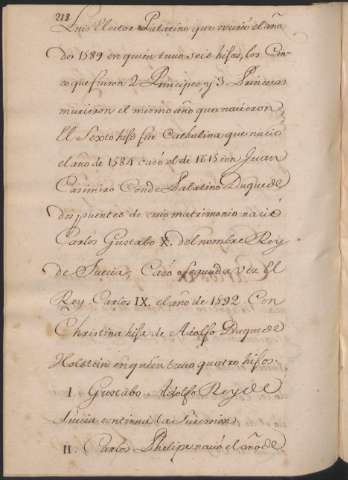 218
Luis Elector Palatino que murio el año
de 1589 en quien tuvo seis hijos, los Cin-
co que fueron 2 Principes y 3 Princesas
murieron el mismo año que nacieron
El Sexto hijo fue Cathalina que nacio
el año de 1584 casó el de 1615 con Juan
Casimiro Conde Palatino Duque de
dos puentes de cuio matrimonio nacio
Carlos Gustabo X. del nombre Rey
de Suecia, Casó segunda vez El
Rey Carlos IX. el año de 1592 Con
Christina hija de Adolfo Duque de
Holstein en quien tuvo quatro hijos.
I. Gustabo Adolfo Rey de
Suecia continua la sucesion
II. Carlos Phelipe nació el año de